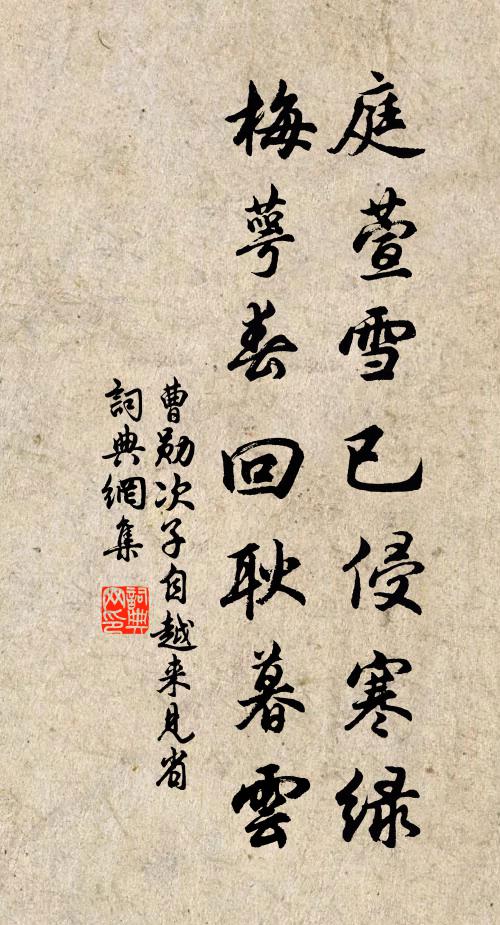 庭萱雪已侵寒緑
梅萼春回耿暮雲
曹勛次子自越来見省
詞典網集
詞典网印